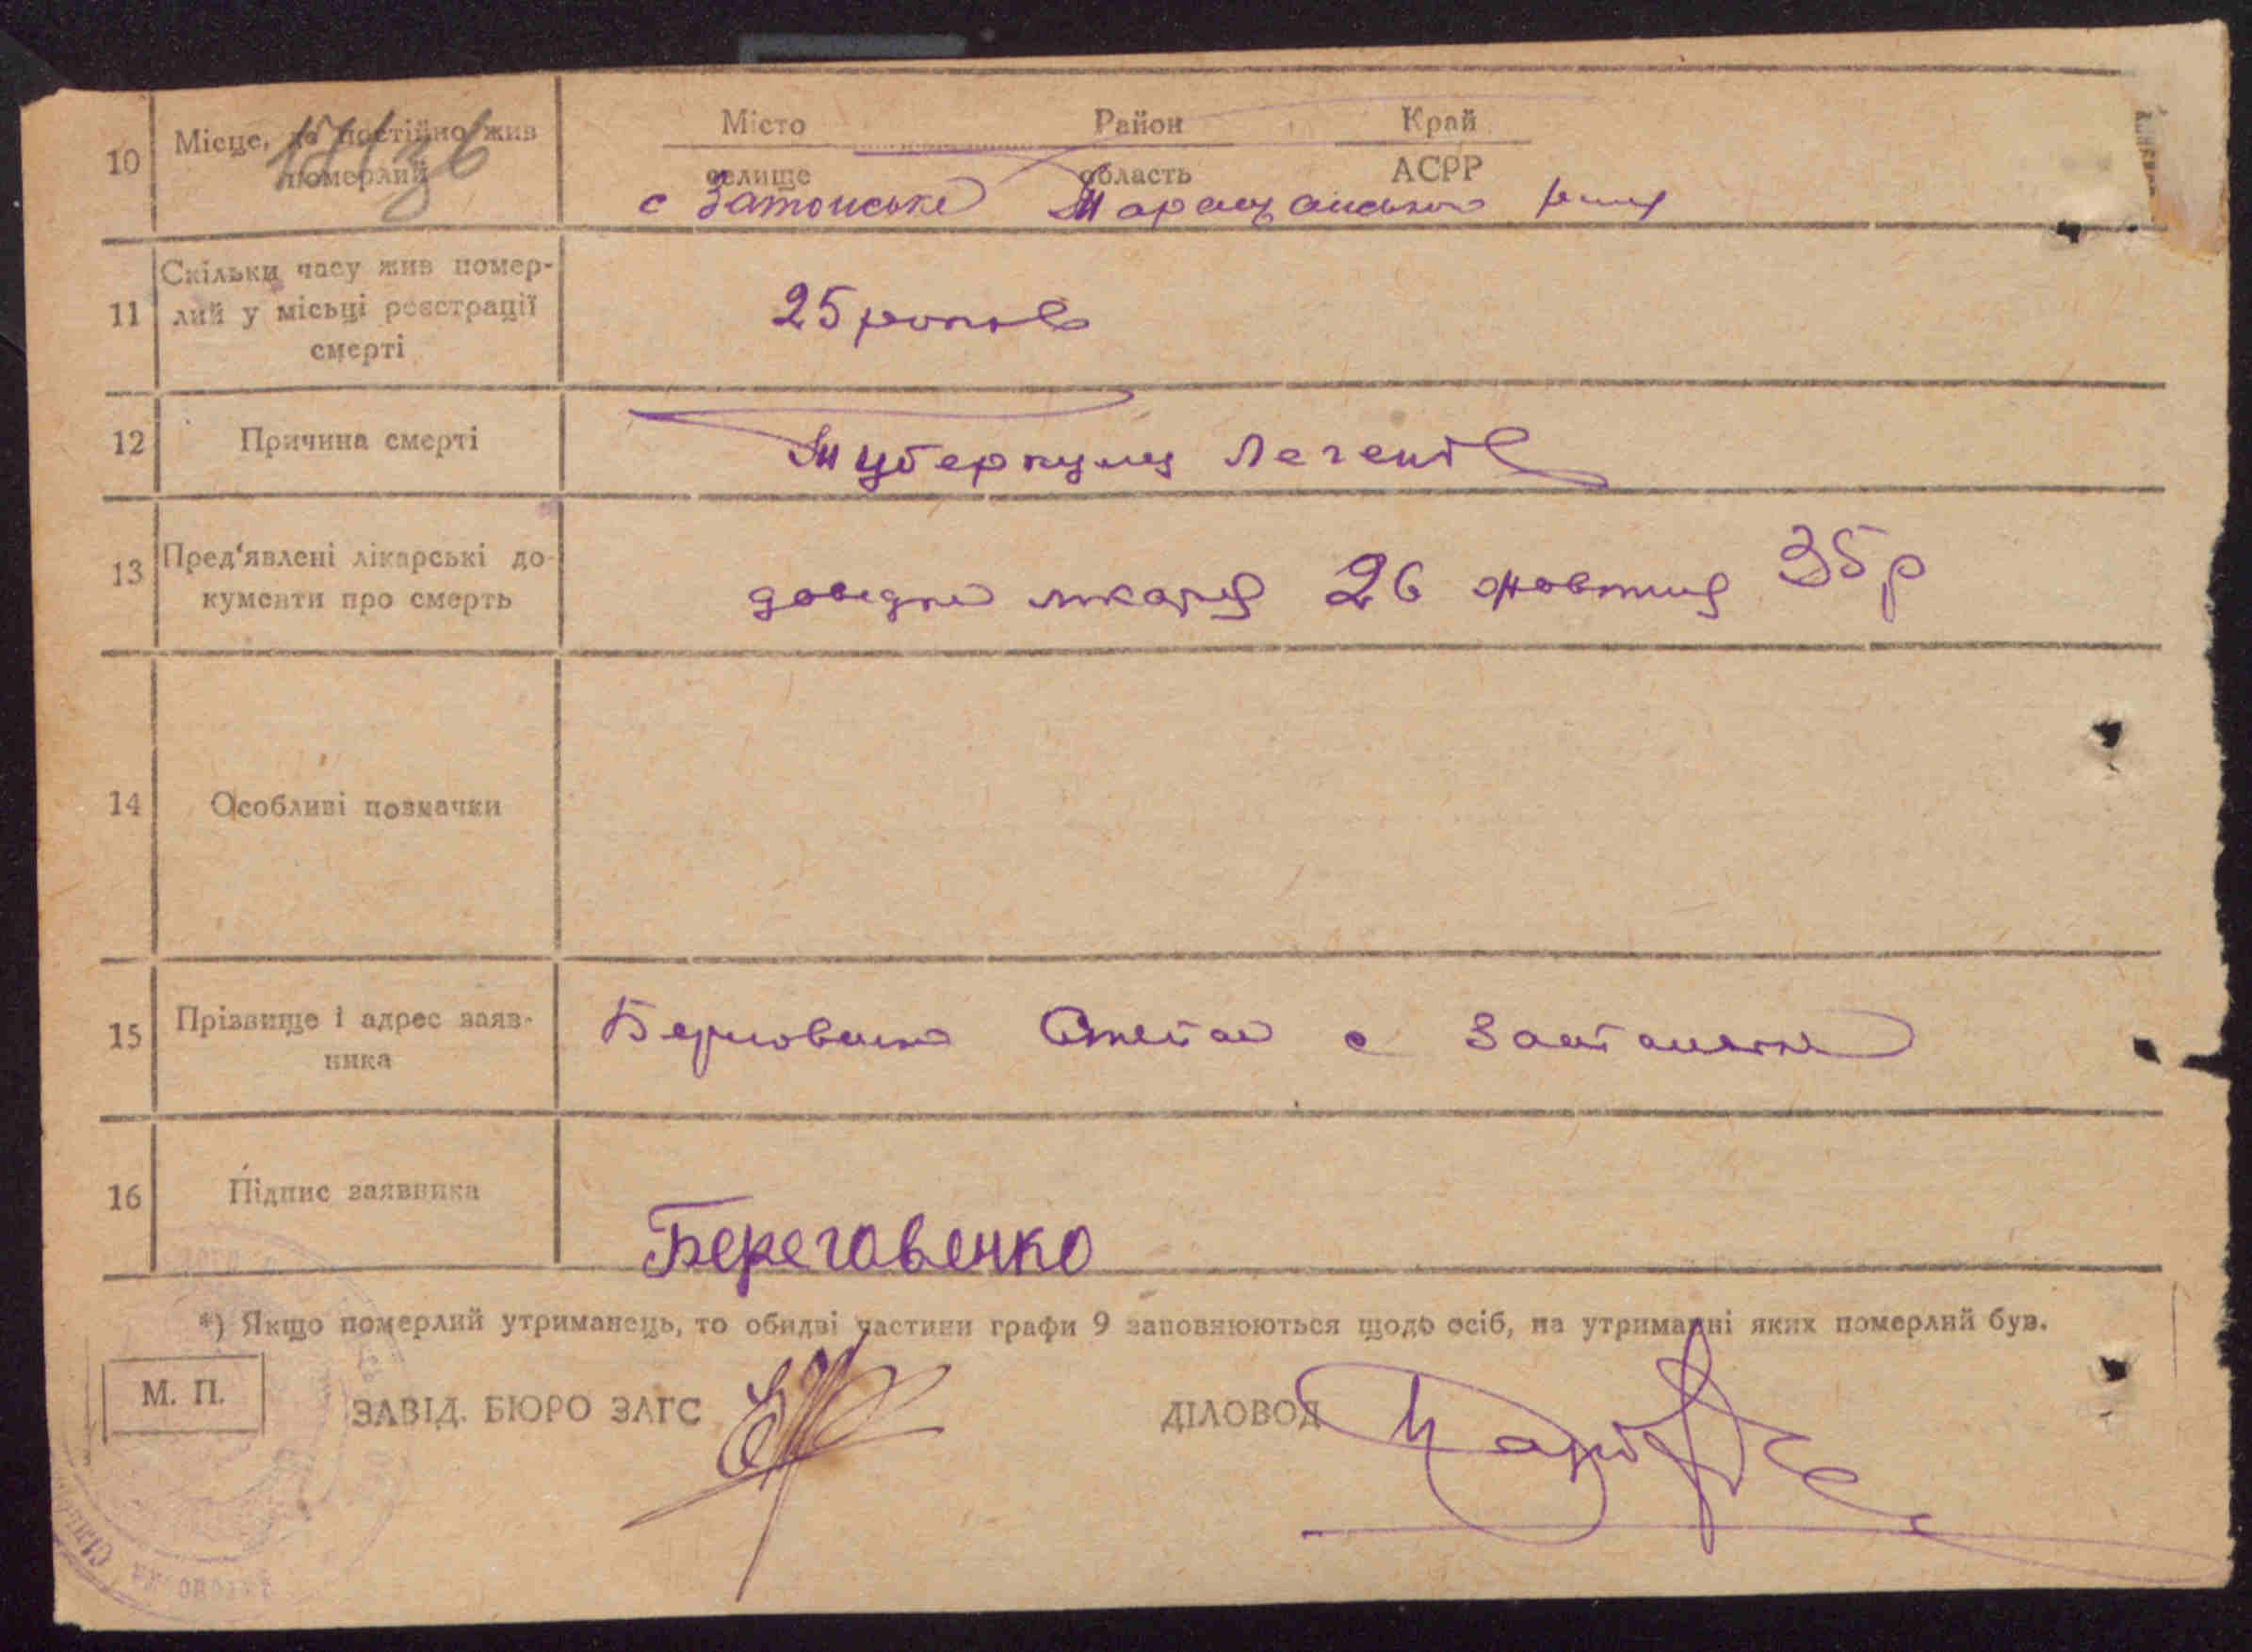 Місто Район Край
10 Місце, де постійно жив
померлий
селище область АСРР
с Затонське Таращанського
11 Скільки часу жив помер-
лий у місьці реєстрації
смерті
25 років
12 Причина смерті
Туберкульоз легенів
13 Пред'явлені лікарські до-
кументи про смерть
довідка лікаря 26 жовтня 35 р
14 Особливі позначки
15 Прізвище і адрес заяв-
ника
с
16 Підпис заявника
Береговенко
*) Якщо померлий утриманець, то обидві частини графи 9 заповнюються щодо осіб, на утриманні яких померлий був.
М. П.
ЗАВІД. БЮРО ЗАГС ДІЛОВОД